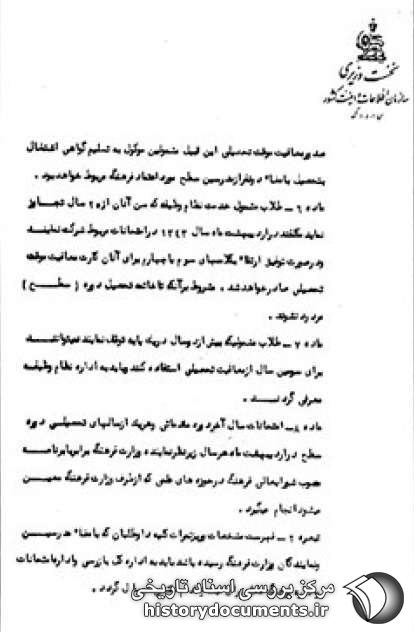 نخست وزیری
سازمان اطلاعات و امنیت کشور
صدور معافیت موقت تحصیلی این قبیل مشمولین موکول به تسلیم گواهی اشتغال
بتحصیل بامضاء دو نفر از مدرسین سطح مورد اعتماد فرهنگ مربوط خواهد بود .
ماده ۶ـ طلاب مشمول خدمت نظام وظیفه که سن آنان از ۲۰ سال تجاوز
نماید مکلفند در اردیبهشت ماه سال ۱۳۴۳ در امتحانات مربوط شرکت نمایند
و در صورت توفیق ارتقاء بکلاسهای سوم یا چهارم برای آنان کارت معافیت موقت
تحصیلی صادر خواهد شد . مشروط برآنکه تا خاتمه تحصیل دوره ( سطح )
مردود نشوند .
ماده ۷ـ طلاب مشمولیکه بیش از دو سال در یک پایه توقف نمایند نمیتوانند
برای سومین سال از معافیت تحصیلی استفاده کنند و باید به اداره نظام وظیفه
معرفی گردند .
ماده ۸ـ امتحانات سال آخر دوره مقدماتی و هریک از سالهای تحصیلی دوره
سطح در اردیبهشت ماه هر سال زیر نظر نماینده وزارت فرهنگ برابر با برنامه
مصوب شورایعالی فرهنگ در حوزه های علمی که از طرف وزارت فرهنگ معین
میشود انجام میگیرد .
تبصره ۲ـ فهرست مشخصات و ریز نمرات کلیه داوطلبان که بامضاء مدرسین
و نمایندگان وزارت فرهنگ رسیده باشد باید به اداره کل بازرسی و اداره امتحانات
گردد .
مرکز بررسی اسناد تاریخی
historydocuments.ir